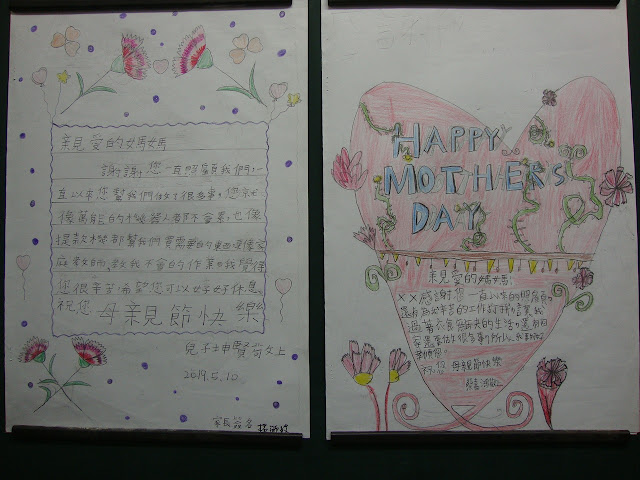 親愛的媽媽
謝謝,您一直照顧我們,一
直以來您幫我們做了很多事。您就
像萬能的機器人都不會累,也像
提款機都幫我們買需要的東西還像家
庭教師,教我不會的作業。我覺得
您很辛苦希望您可以好好休息。
祝您 母親節快樂
兒子
上
2019.5.10
家長簽名
HAPPY
MOTHERS
DAY
親愛的媽媽:
××感謝您一直以來的照顧,
還有
辛苦的工作
讓我
過著衣食無缺的生活,還有回
家還要
很多事,所以
祝您 母親節快樂